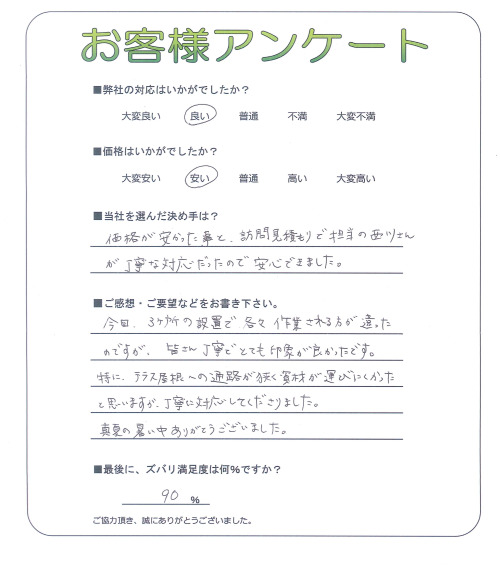 お客様アンケート
■弊社の対応はいかがでしたか？
大変良い 良い 普通 不満 大変不満
■価格はいかがでしたか？
大変安い 安い 普通 高い 大変高い
■当社を選んだ決め手は？
価格が安かった事と、訪問見積もりで担当の西川さん
が丁寧な対応だったので安心できました。
■ご感想・ご要望などをお書き下さい。
今回、3ヶ所の設置で各々作業される方が違った
のですが、皆さん丁寧でとても印象が良かったです。
特に、テラス屋根への通路が狭く資材が運びにくかった
と思いますが、丁寧に対応してくださりました。
真夏の暑い中ありがとうございました。
■最後に、ズバリ満足度は何％ですか？
90 ％
ご協力頂き、誠にありがとうございました。